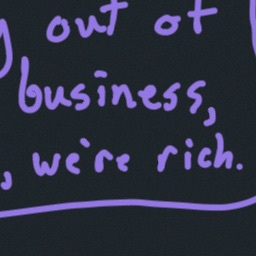 out of
business,
, we're rich.